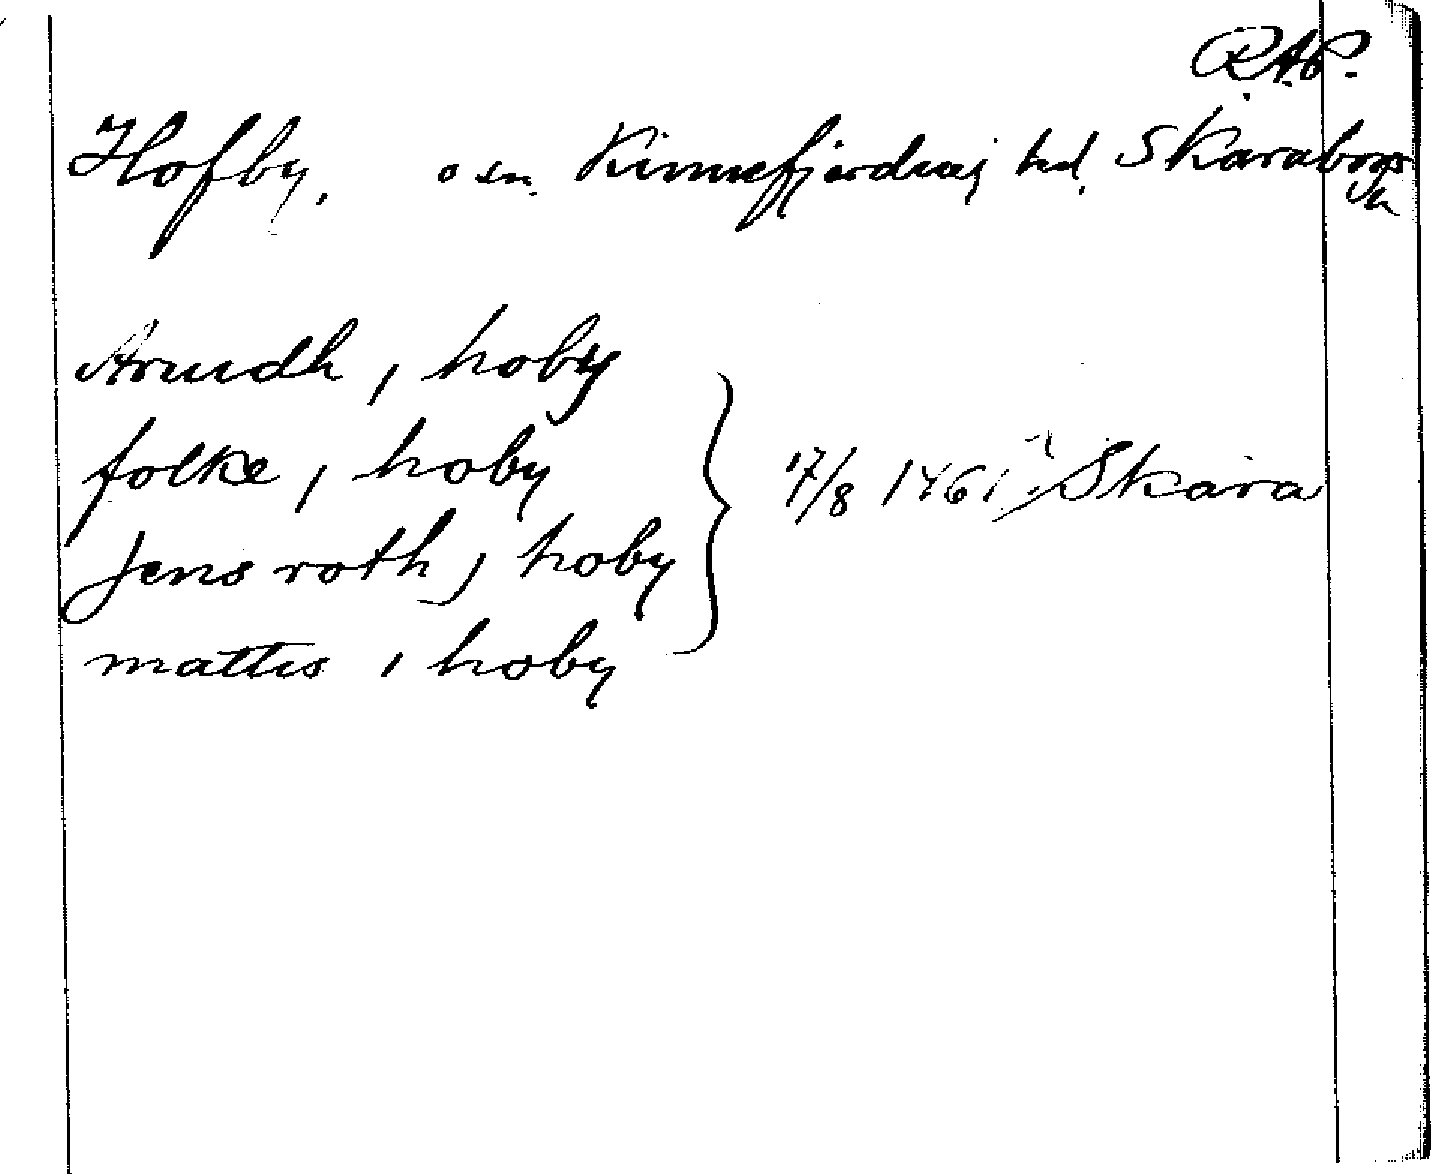 R.A.P.
Hofby, o sn. Kinnefjärdings hd. Skaraborgs
län
Arundh, i hoby
folke, i hoby
Jens roth, i hoby
mattis i hoby
17/8 1461. Skara